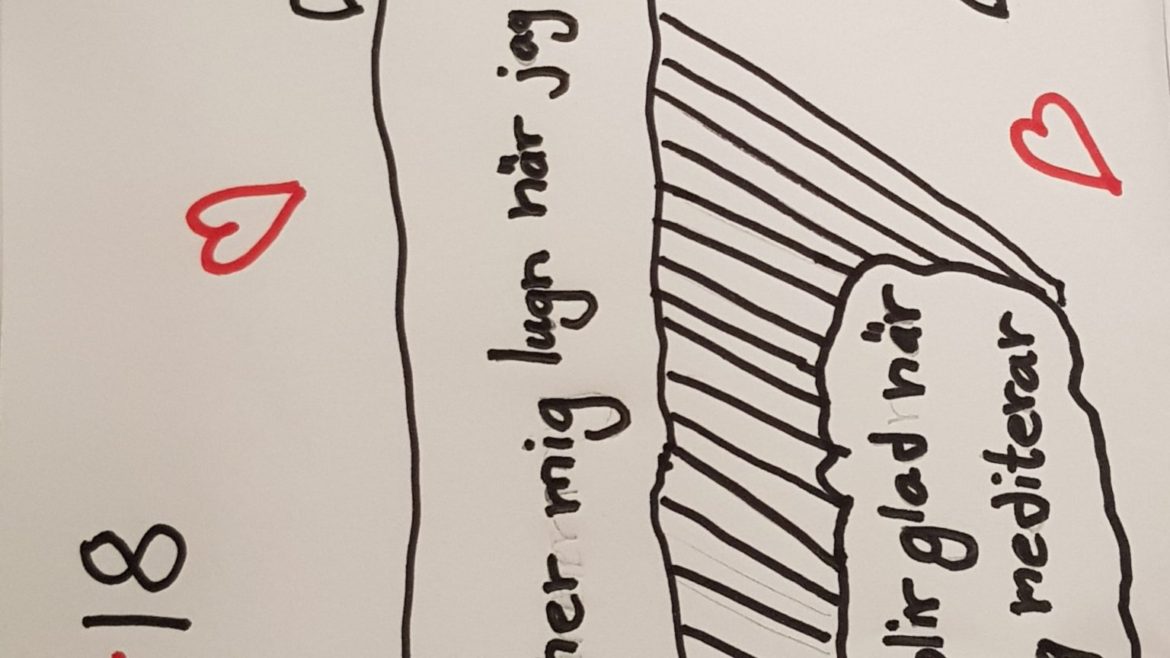 18
ner mig lugn när jag
blir glad när
mediterar